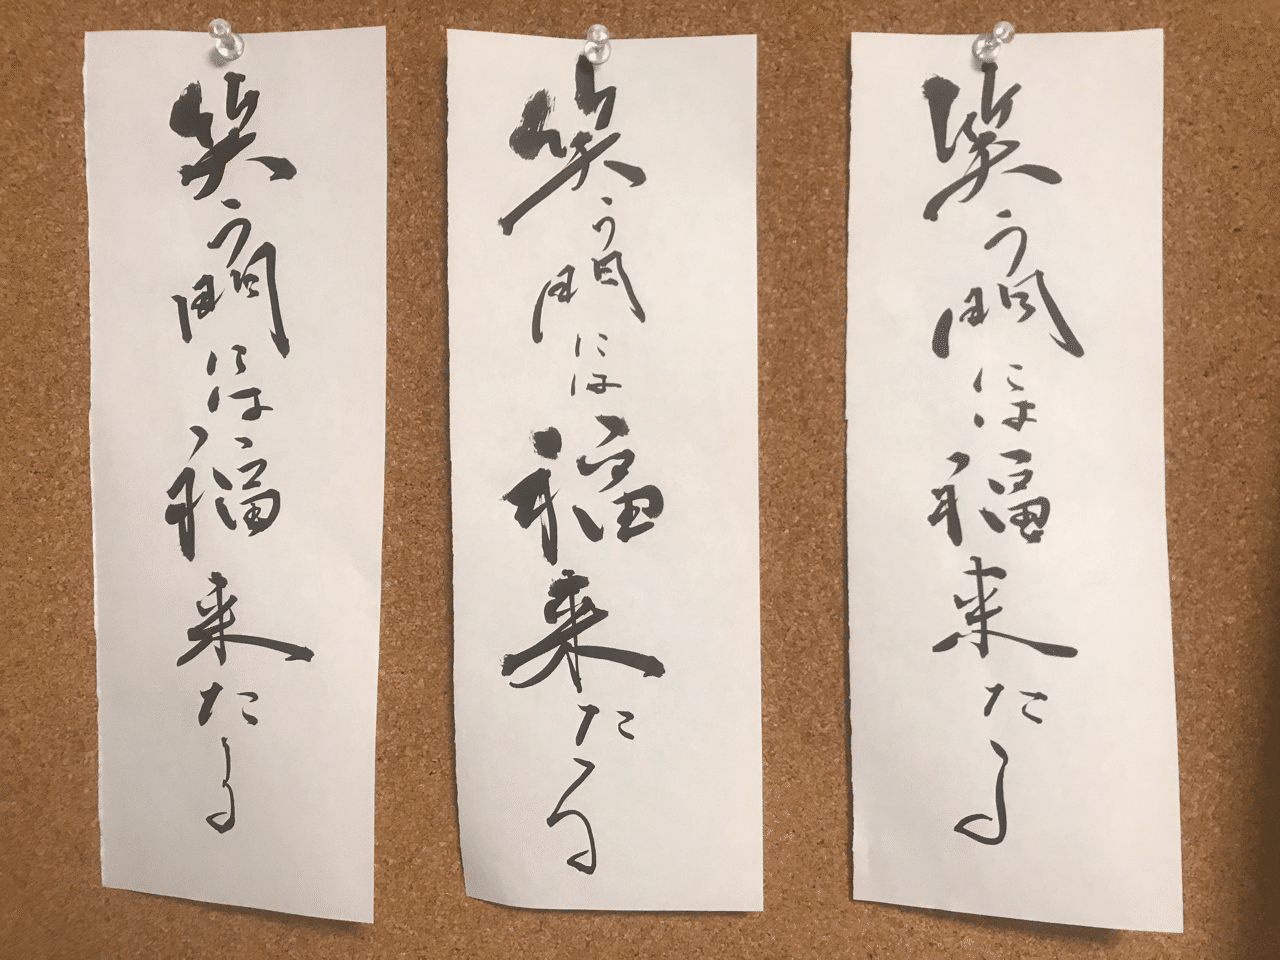 笑う門には福来たる
笑う門には福来たる
笑う門には福来たる